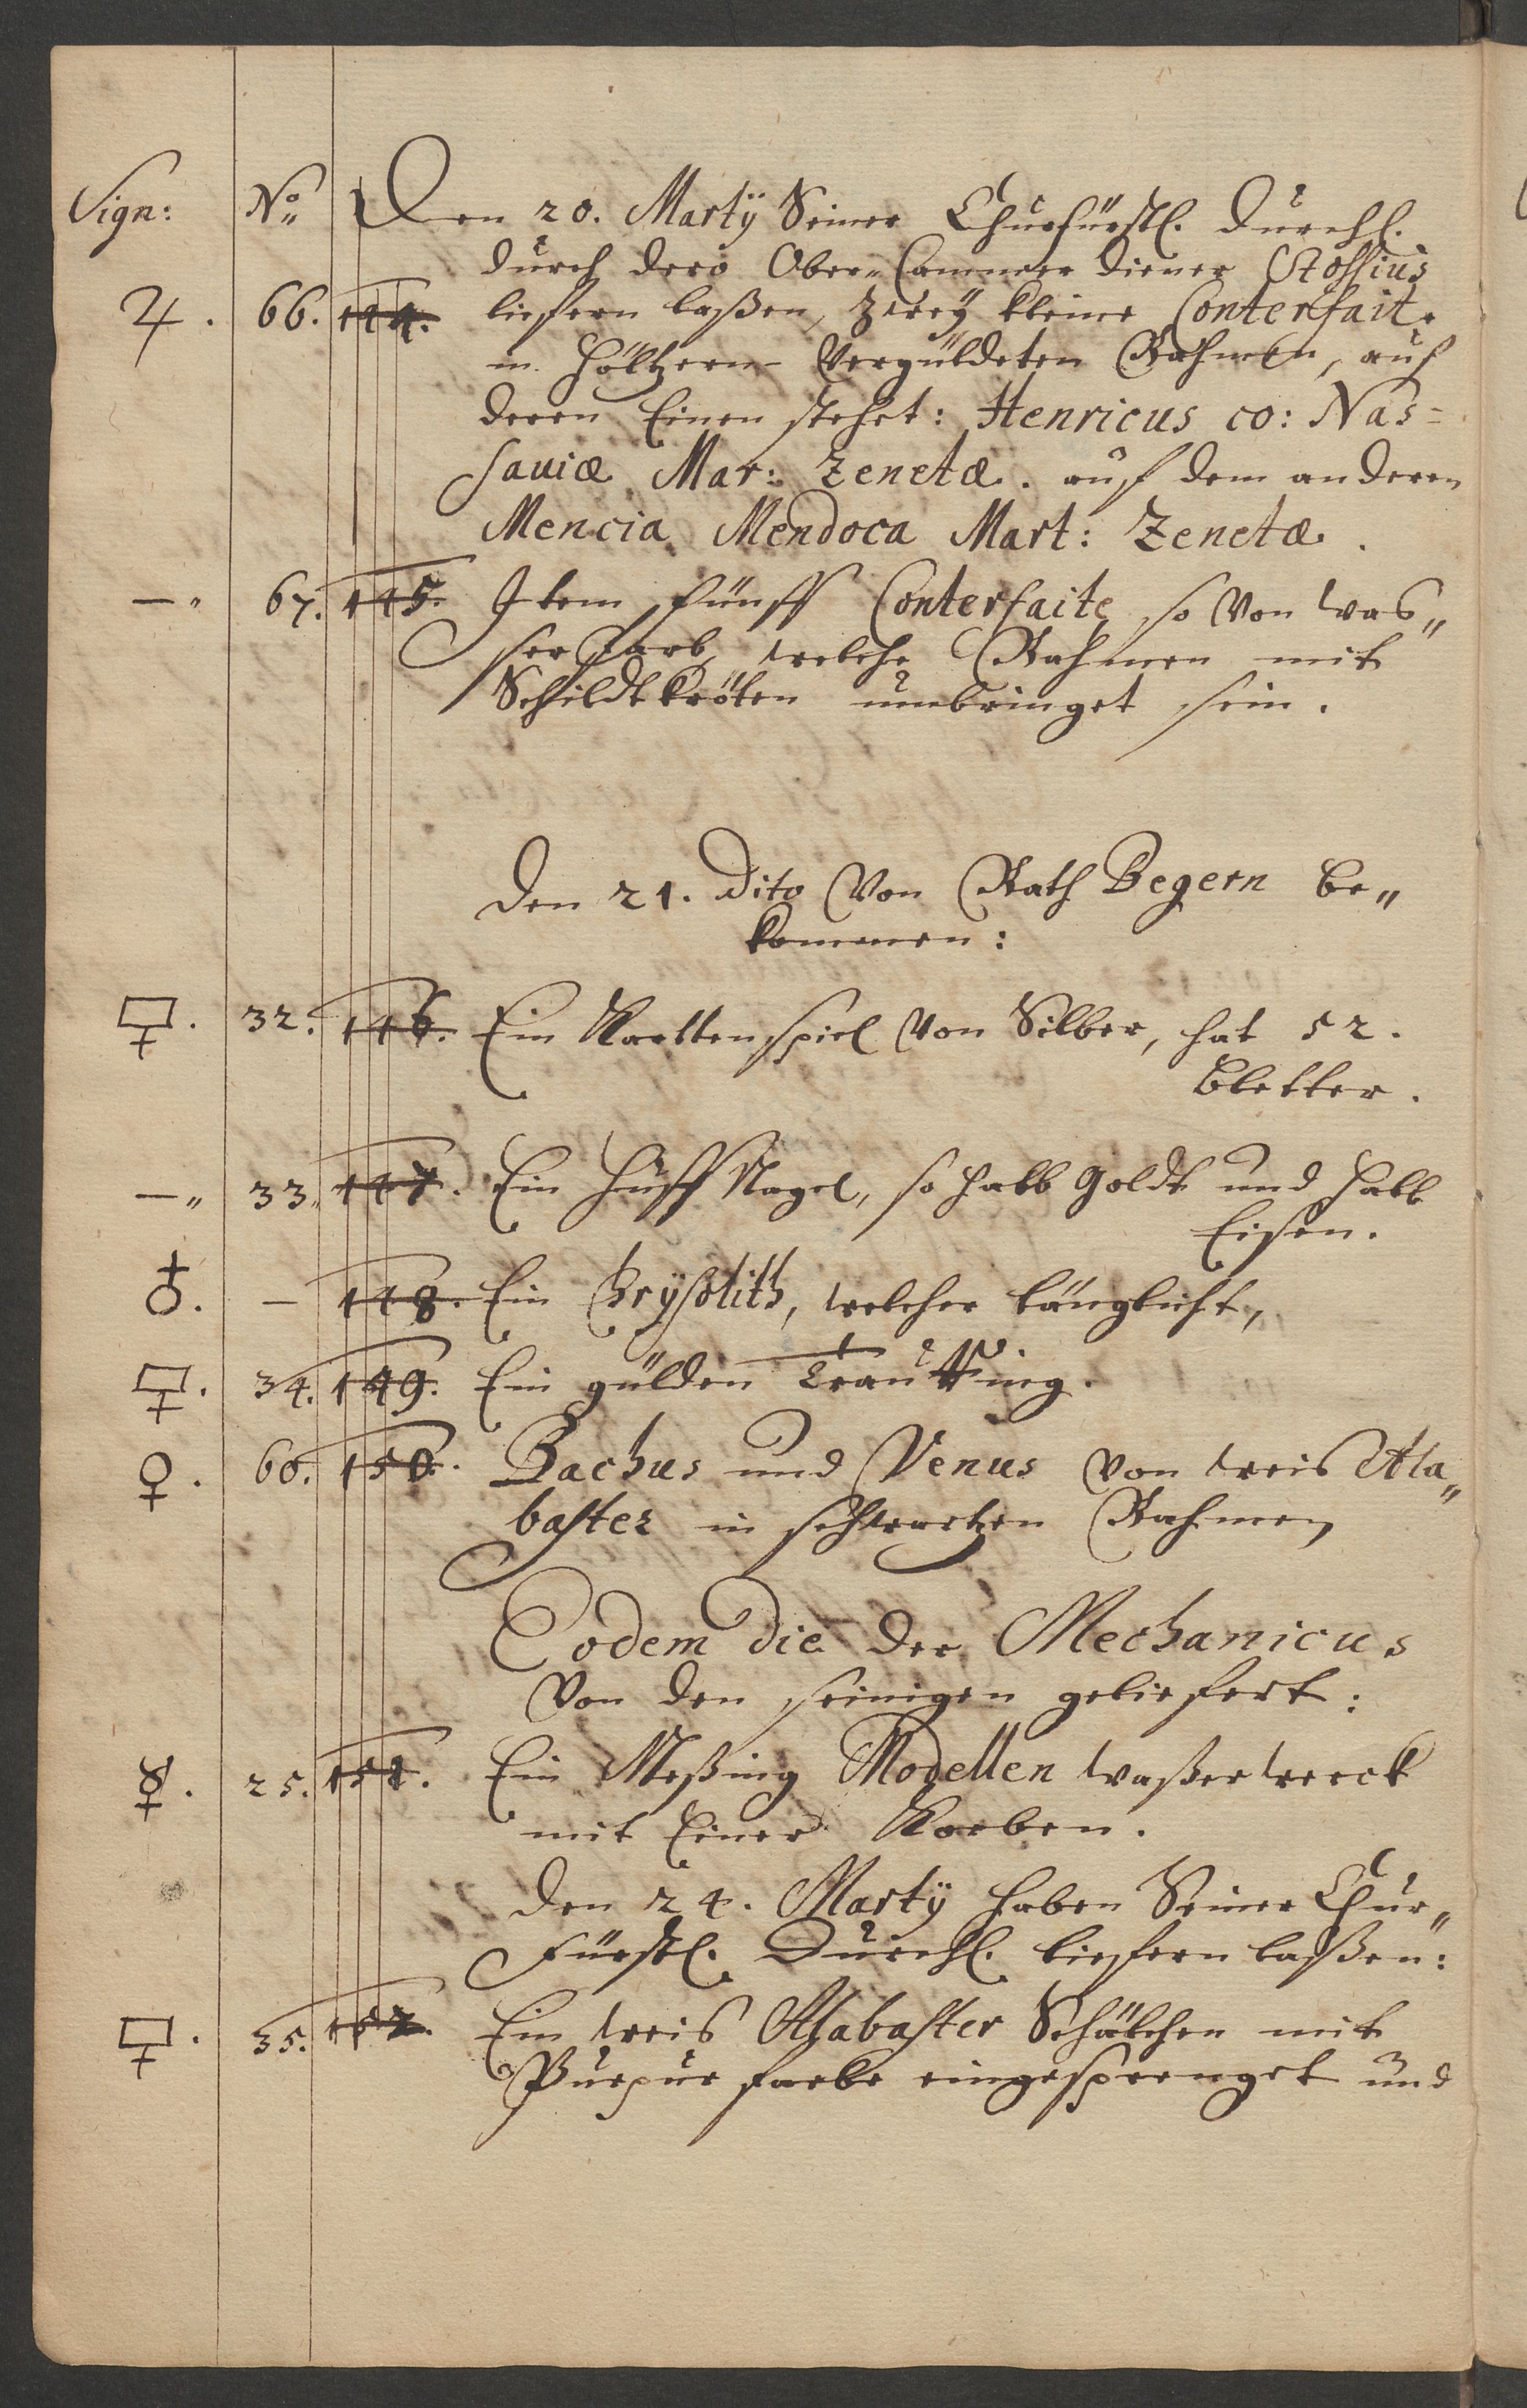 Sign: No Den 20. Martÿ Seiner Churfürstl. Durchl.
durch dero Ober-Cammer diener Stossius
♃. 66. 144. liefern laßen, Zweÿ kleine Conterfait.
in höltzern Vergüldeten Rahmen, auf
deren Einen stehet: Henricus co: Nas=
saviæ Mar: Zenetæ. auf dem anderen
Mencia Mendoca Mart: Zenetæ.
—" 67. 145. Item fünff Conterfaite so Von was„
ser farb, welche Rahmen mit
Schildtkröten umbringet sein.
Den 21. Dito Von Rath Begern be„
kommen:
32. 146. Ein Karttenspiel Von Silber, hat 52.
bletter.
—" 33. 147. Ein Huff Nagel, so halb goldt und halb
Eisen.
♁. — 148. Ein Chrysolith, welcher länglicht,
34. 149. Ein gülden Trauring.
♀. 60. 150. Bachus und Venus von weis Ala„
baster in schwartzen Rahmen
Eodem die der Mechanicus
Von den seinigen geliefert:
☿. 25. 151. Ein Meßing Modellen waßerwerck
mit Einer Korben.
Den 24. Martÿ haben Seiner Chur„
Fürstl. Durchl. liefern laßen:
35. 152. Ein weis Alabaster Schälchen mit
Purpur farbe eingesprenget und